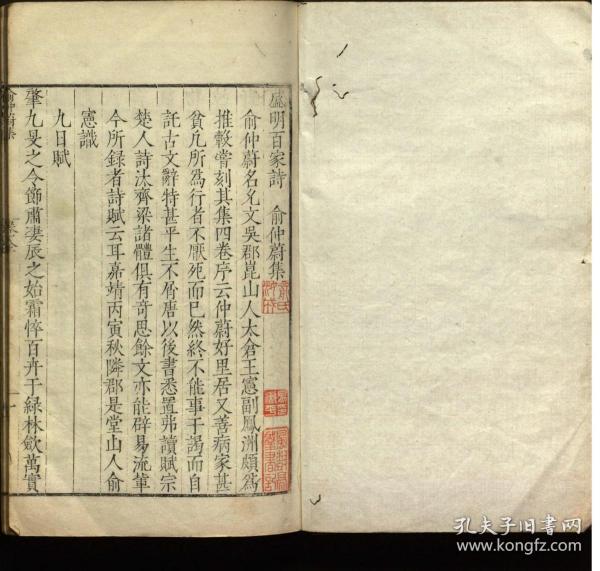 盛明百家詩 俞仲蔚集
俞仲蔚名允文吳郡崑山人太倉王憲副鳳洲頗為
推轂嘗刻其集四卷序云仲蔚好里居又善病家甚
貧凡所為行者不厭死而已然終不能事干謁而自
託古文辭特甚平生不屑唐以後書悉置弗讀賦宗
楚人詩汰齊梁諸體俱有奇思餘文亦能辟易流輩
今所録者詩賦云耳嘉靖丙寅秋隣郡是堂山人俞
憲識
九日賦
肇九旻之令節肅淒辰之始霜悴百卉于緑林歛萬實
俞仲蔚集
孔夫子旧书网
www.kongfz.com